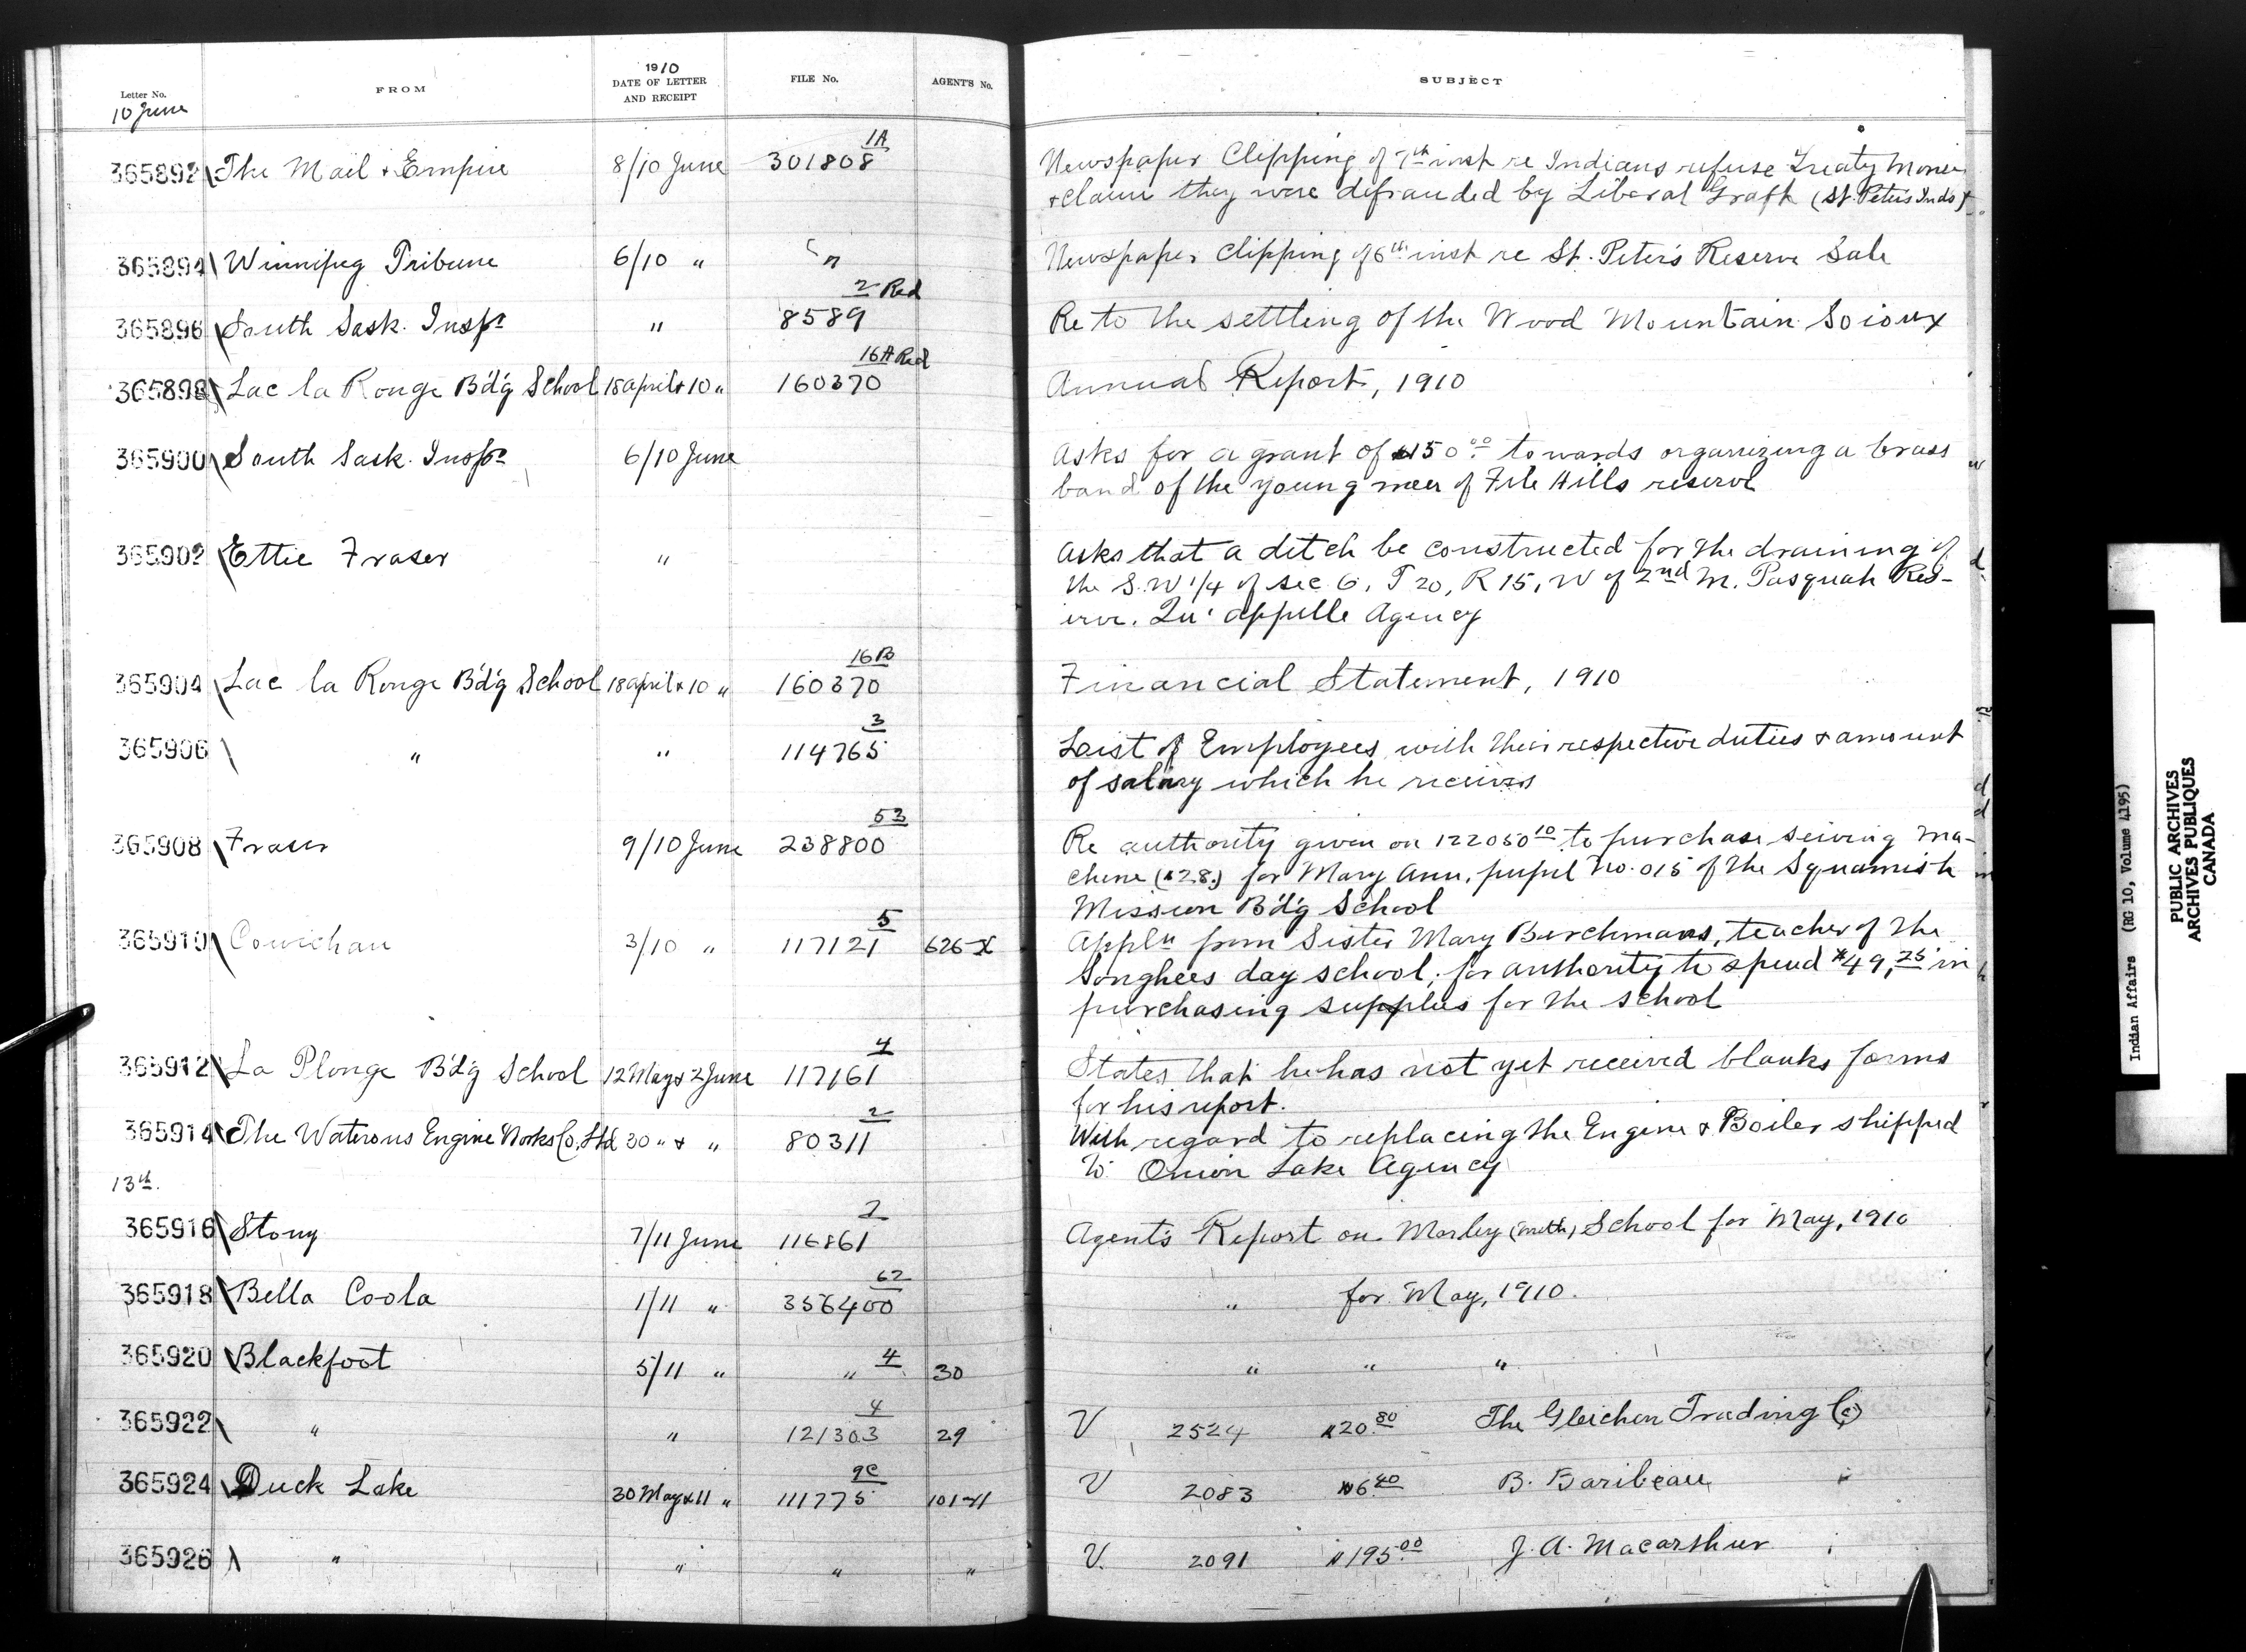 Letter No. FROM 1910 DATE OF LETTER AND RECEIPT FILE No. AGENT'S No. SUBJECT
10 June
365892 The Mail & Empire 8/10 June 301808 1A Newspaper Clipping of 7th inst re Indians refuse Treaty
& claim they were defrauded by Liberal Graft (St. Peter's Inds)
365894 Winnipeg Tribune 6/10 " " Newspaper Clipping of 6th inst re St. Peter's Reserve Sale
365896 South Sask. Inspr " 8589 2 Red Re to the settling of the Wood Mountain Soioux
365898 Lac la Ronge B'd'g School 18 april & 10 " 160370 16A Red Annual Report, 1910
365900 South Sask. Inspr 6/10 June Asks for a grant of $150.00 towards organizing a brass
band of the young men of File Hills reserve
365902 Ettie Fraser " Asks that a ditch be constructed for the draining of
the S.W 1/4 of sec 6, T 20, R 15, W of 2nd M. Pasquah Res-
erve. Qu'appelle Agency
365904 Lac la Ronge B'd'g School 18 april & 10 " 160370 16B Financial Statement, 1910
365906 " " 114765 3 List of Employees with their respective duties & amount
of salary which he receives
365908 Fraser 9/10 June 238800 53 Re authority given on 122050 10 to purchase sewing ma-
chine ($28.) for Mary Ann, pupil No. 015 of the Squamish
Mission B'd'g School
365910 Cowichan 3/10 " 117121 5 626-X Appln from Sister Mary Berchmans, teacher of the
Songhees day school, for authority to spend $49,25 in
purchasing supplies for the school
365912 La Plonge B'd'g School 12 May & 2 June 117161 4 States that he has not yet received blanks forms
for his report.
365914 The Waterous Engine Works Co, Ltd 30 " & " 80311 2 With regard to replacing the Engine & Boiler shipped
to Onion Lake Agency
13th.
365916 Stony 7/11 June 116861 2 Agent's Report on Morley (Meth) School for May, 1910
365918 Bella Coola 1/11 " 356400 62 " for May, 1910.
365920 Blackfoot 5/11 " " 4 30 " " "
365922 " " 121303 4 29 V 2524 $20.80 The Gleichen Trading Co
365924 Duck Lake 30 May & 11 " 111775 9C 101-11 V 2083 $6.40 B. Baribeau
365926 " " " " V. 2091 $195.00 J. A. Macarthur
Indian Affairs (RG 10, Volume 4195)
PUBLIC ARCHIVES
ARCHIVES PUBLIQUES
CANADA